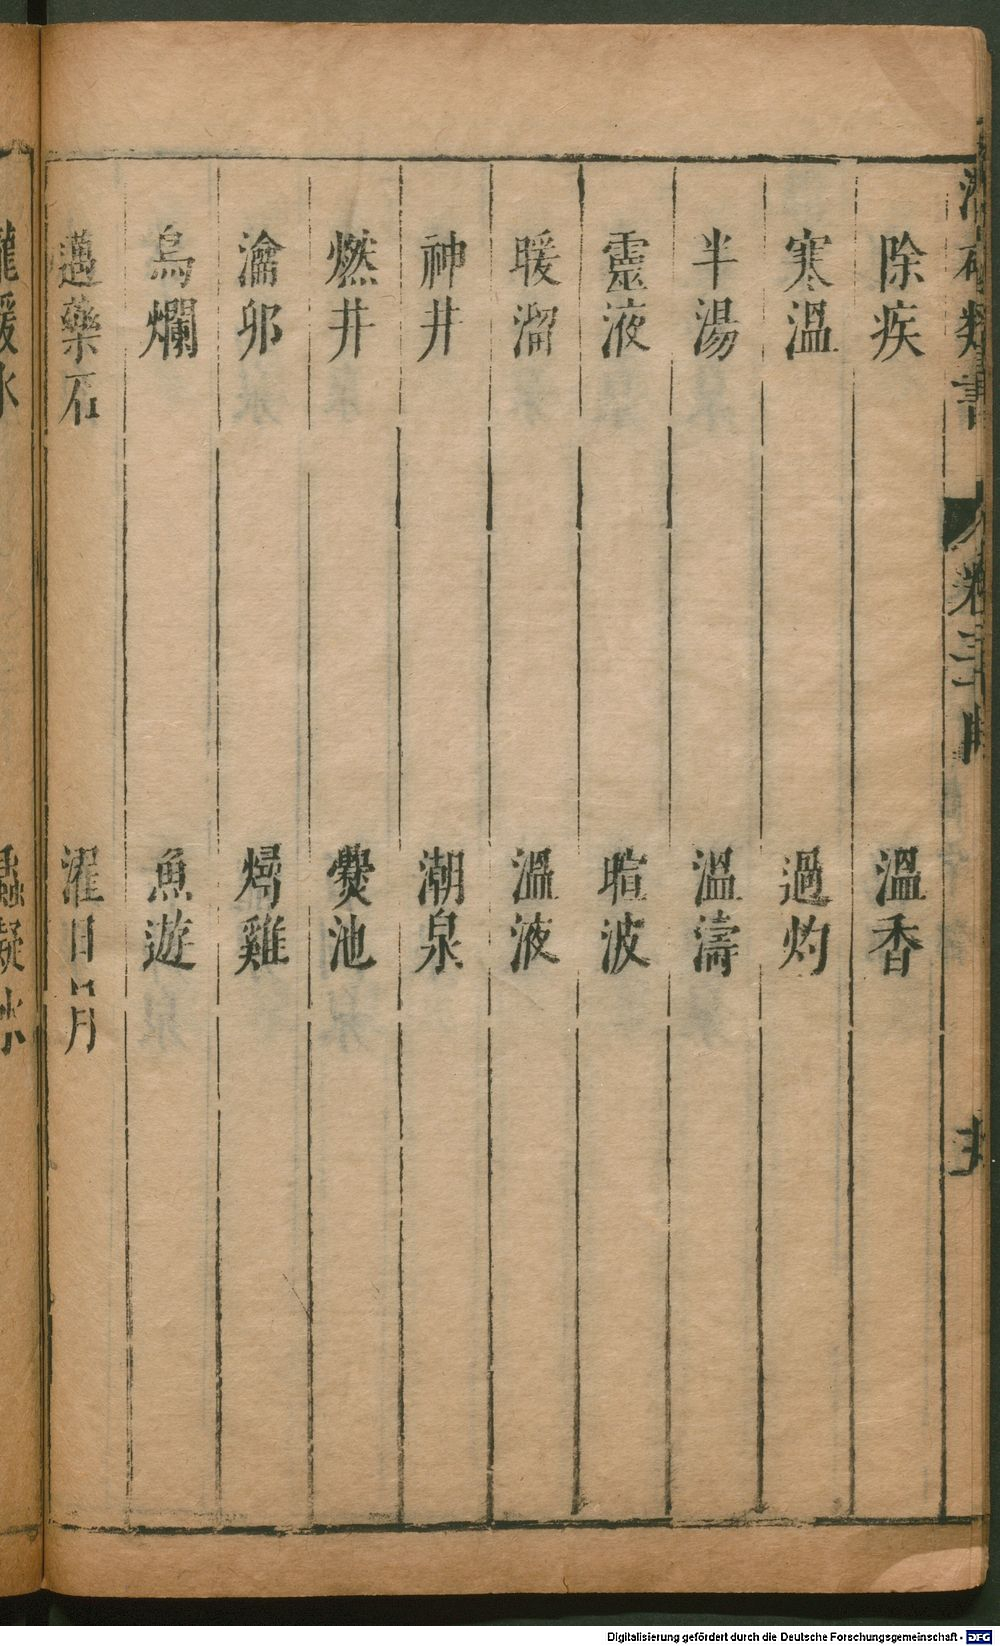 除疾 溫香
寒溫 過灼
半湯 溫濤
靈液 暄波
暖溜 溫液
神井 潮泉
燃井 爨池
瀹卵 燖雞
烏爛 魚遊
邁藥石 濯日月
Digitalisierung gefördert durch die Deutsche Forschungsgemeinschaft - DFG